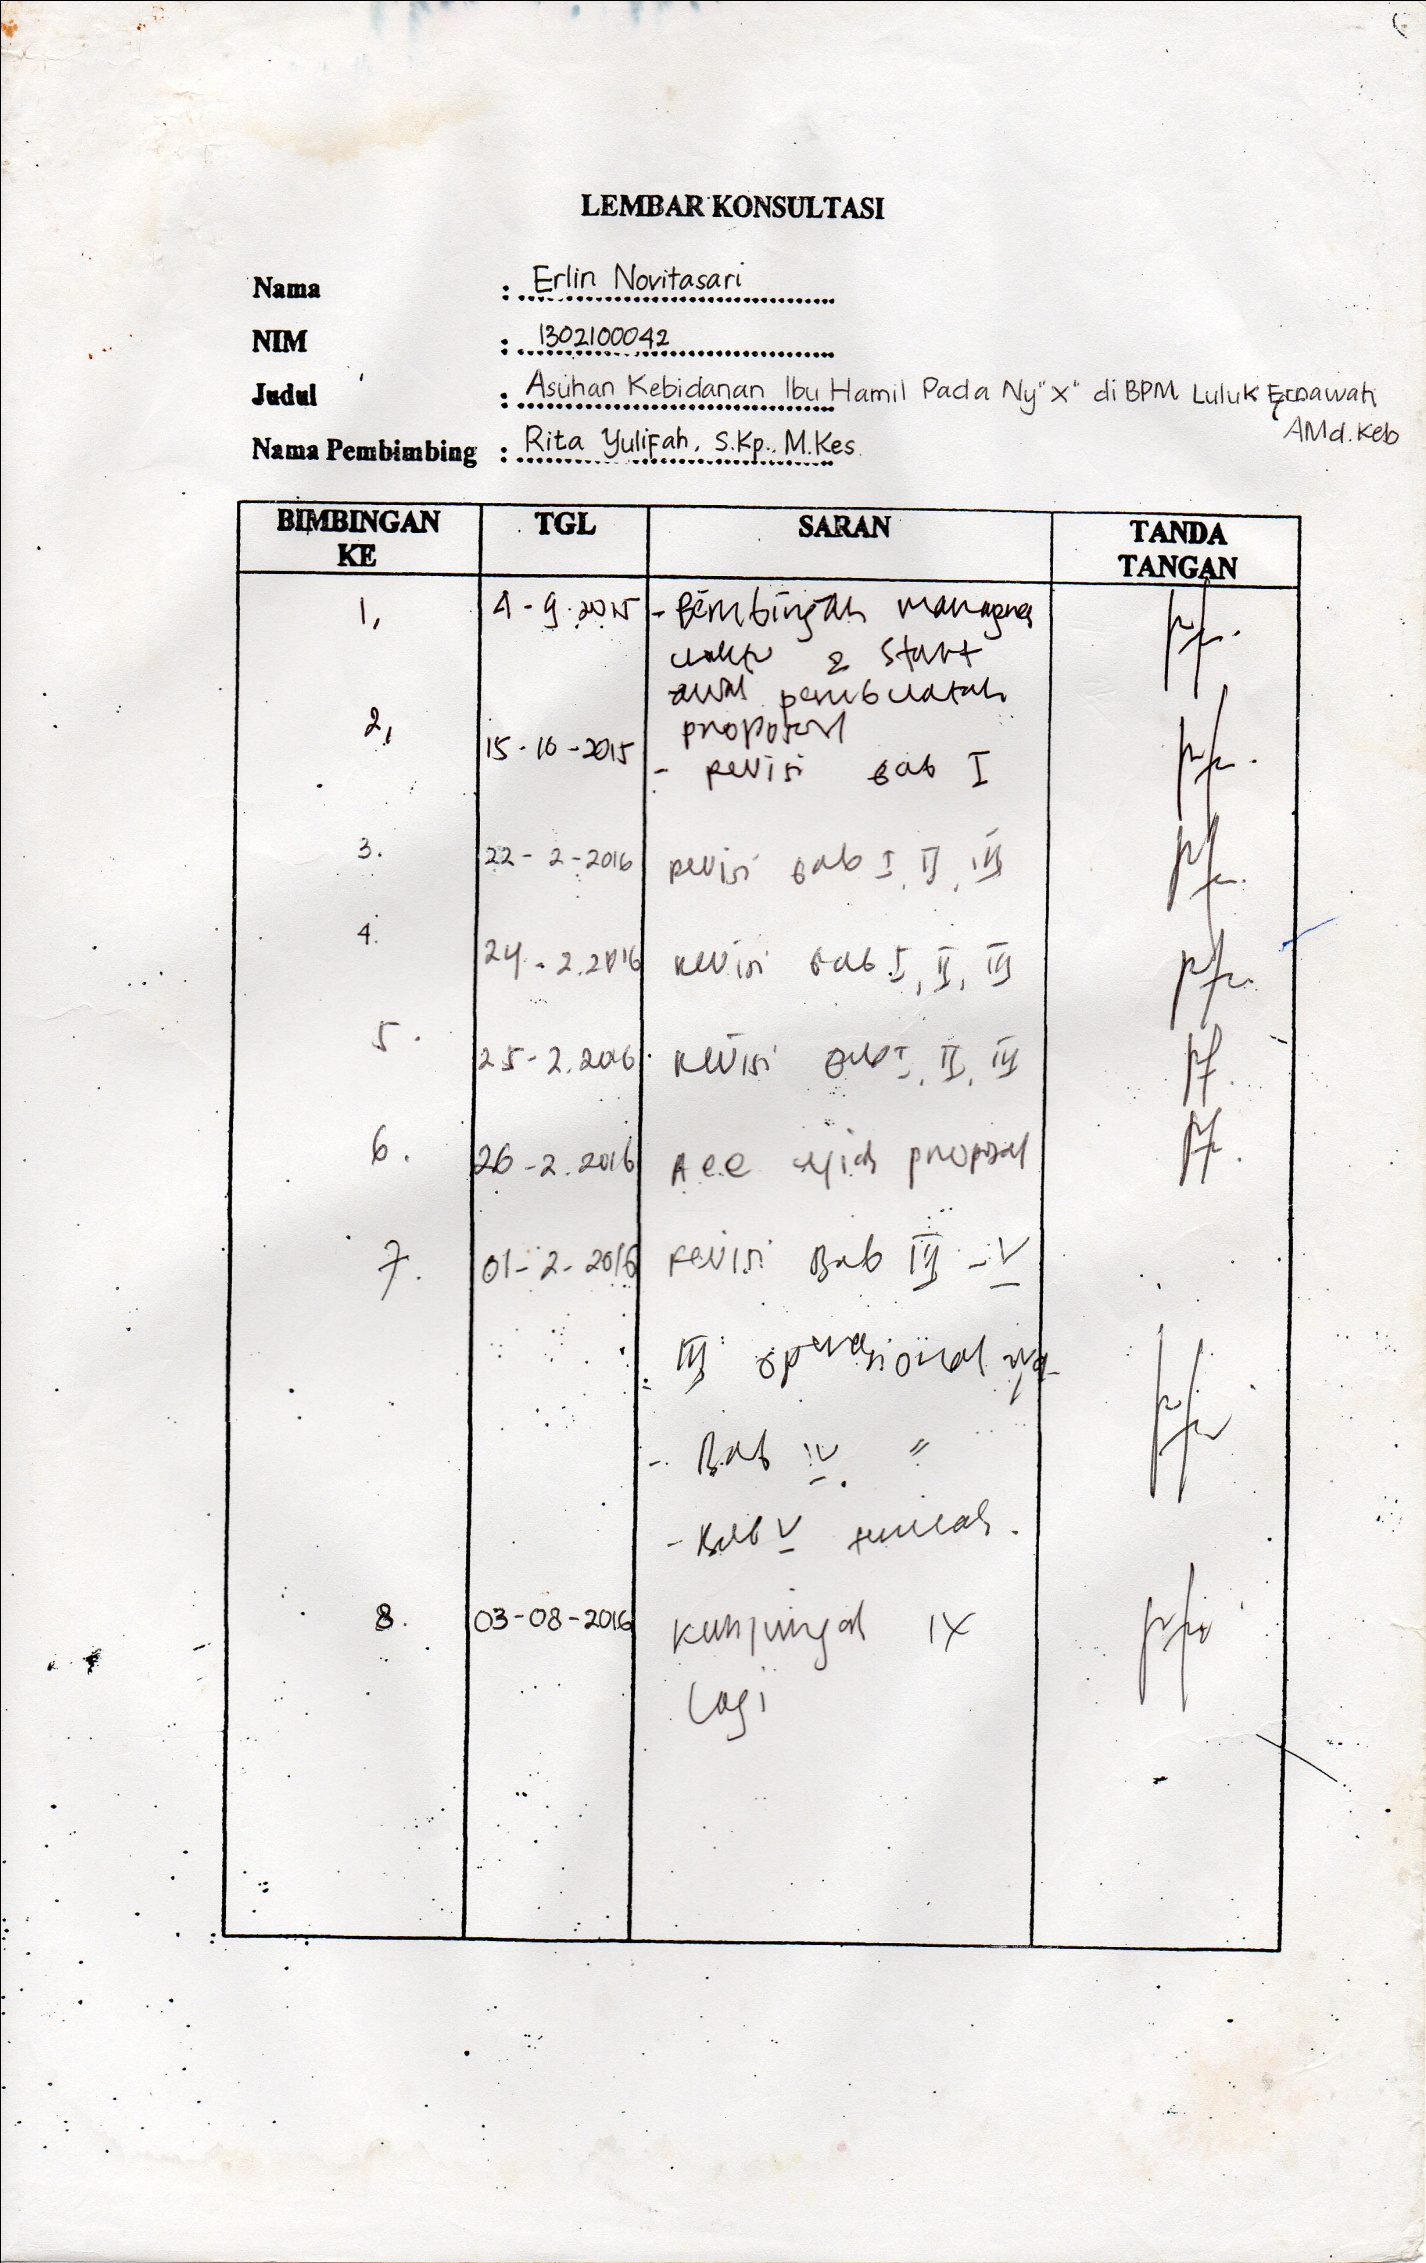 LEMBAR KONSULTASI
Nama : Erlin Novitasari
NIM : 1302100042
Judul : Asuhan Kebidanan Ibu Hamil Pada Ny"X" di BPM Luluk Ernawati
AMd.Keb
Nama Pembimbing : Rita Yulifah, S.Kp., M.Kes
BIMBINGAN KE TGL SARAN TANDA TANGAN
1, 4-9-2015 - Bimbingan
waktu & start
awal pembuatan
proposal
2, 15-10-2015 - revisi Bab I
3. 22-2-2016 revisi Bab I, II, III
4. 24-2.2016 revisi Bab I, II, III
5. 25-2.2016 revisi Bab I, II, III
6. 26-2.2016 Acc ujian proposal
7. 01-2-2016 revisi Bab III - V
III operasional
- Bab IV. "
- Bab V
8. 03-08-2016 Kunjungan 1X
lagi